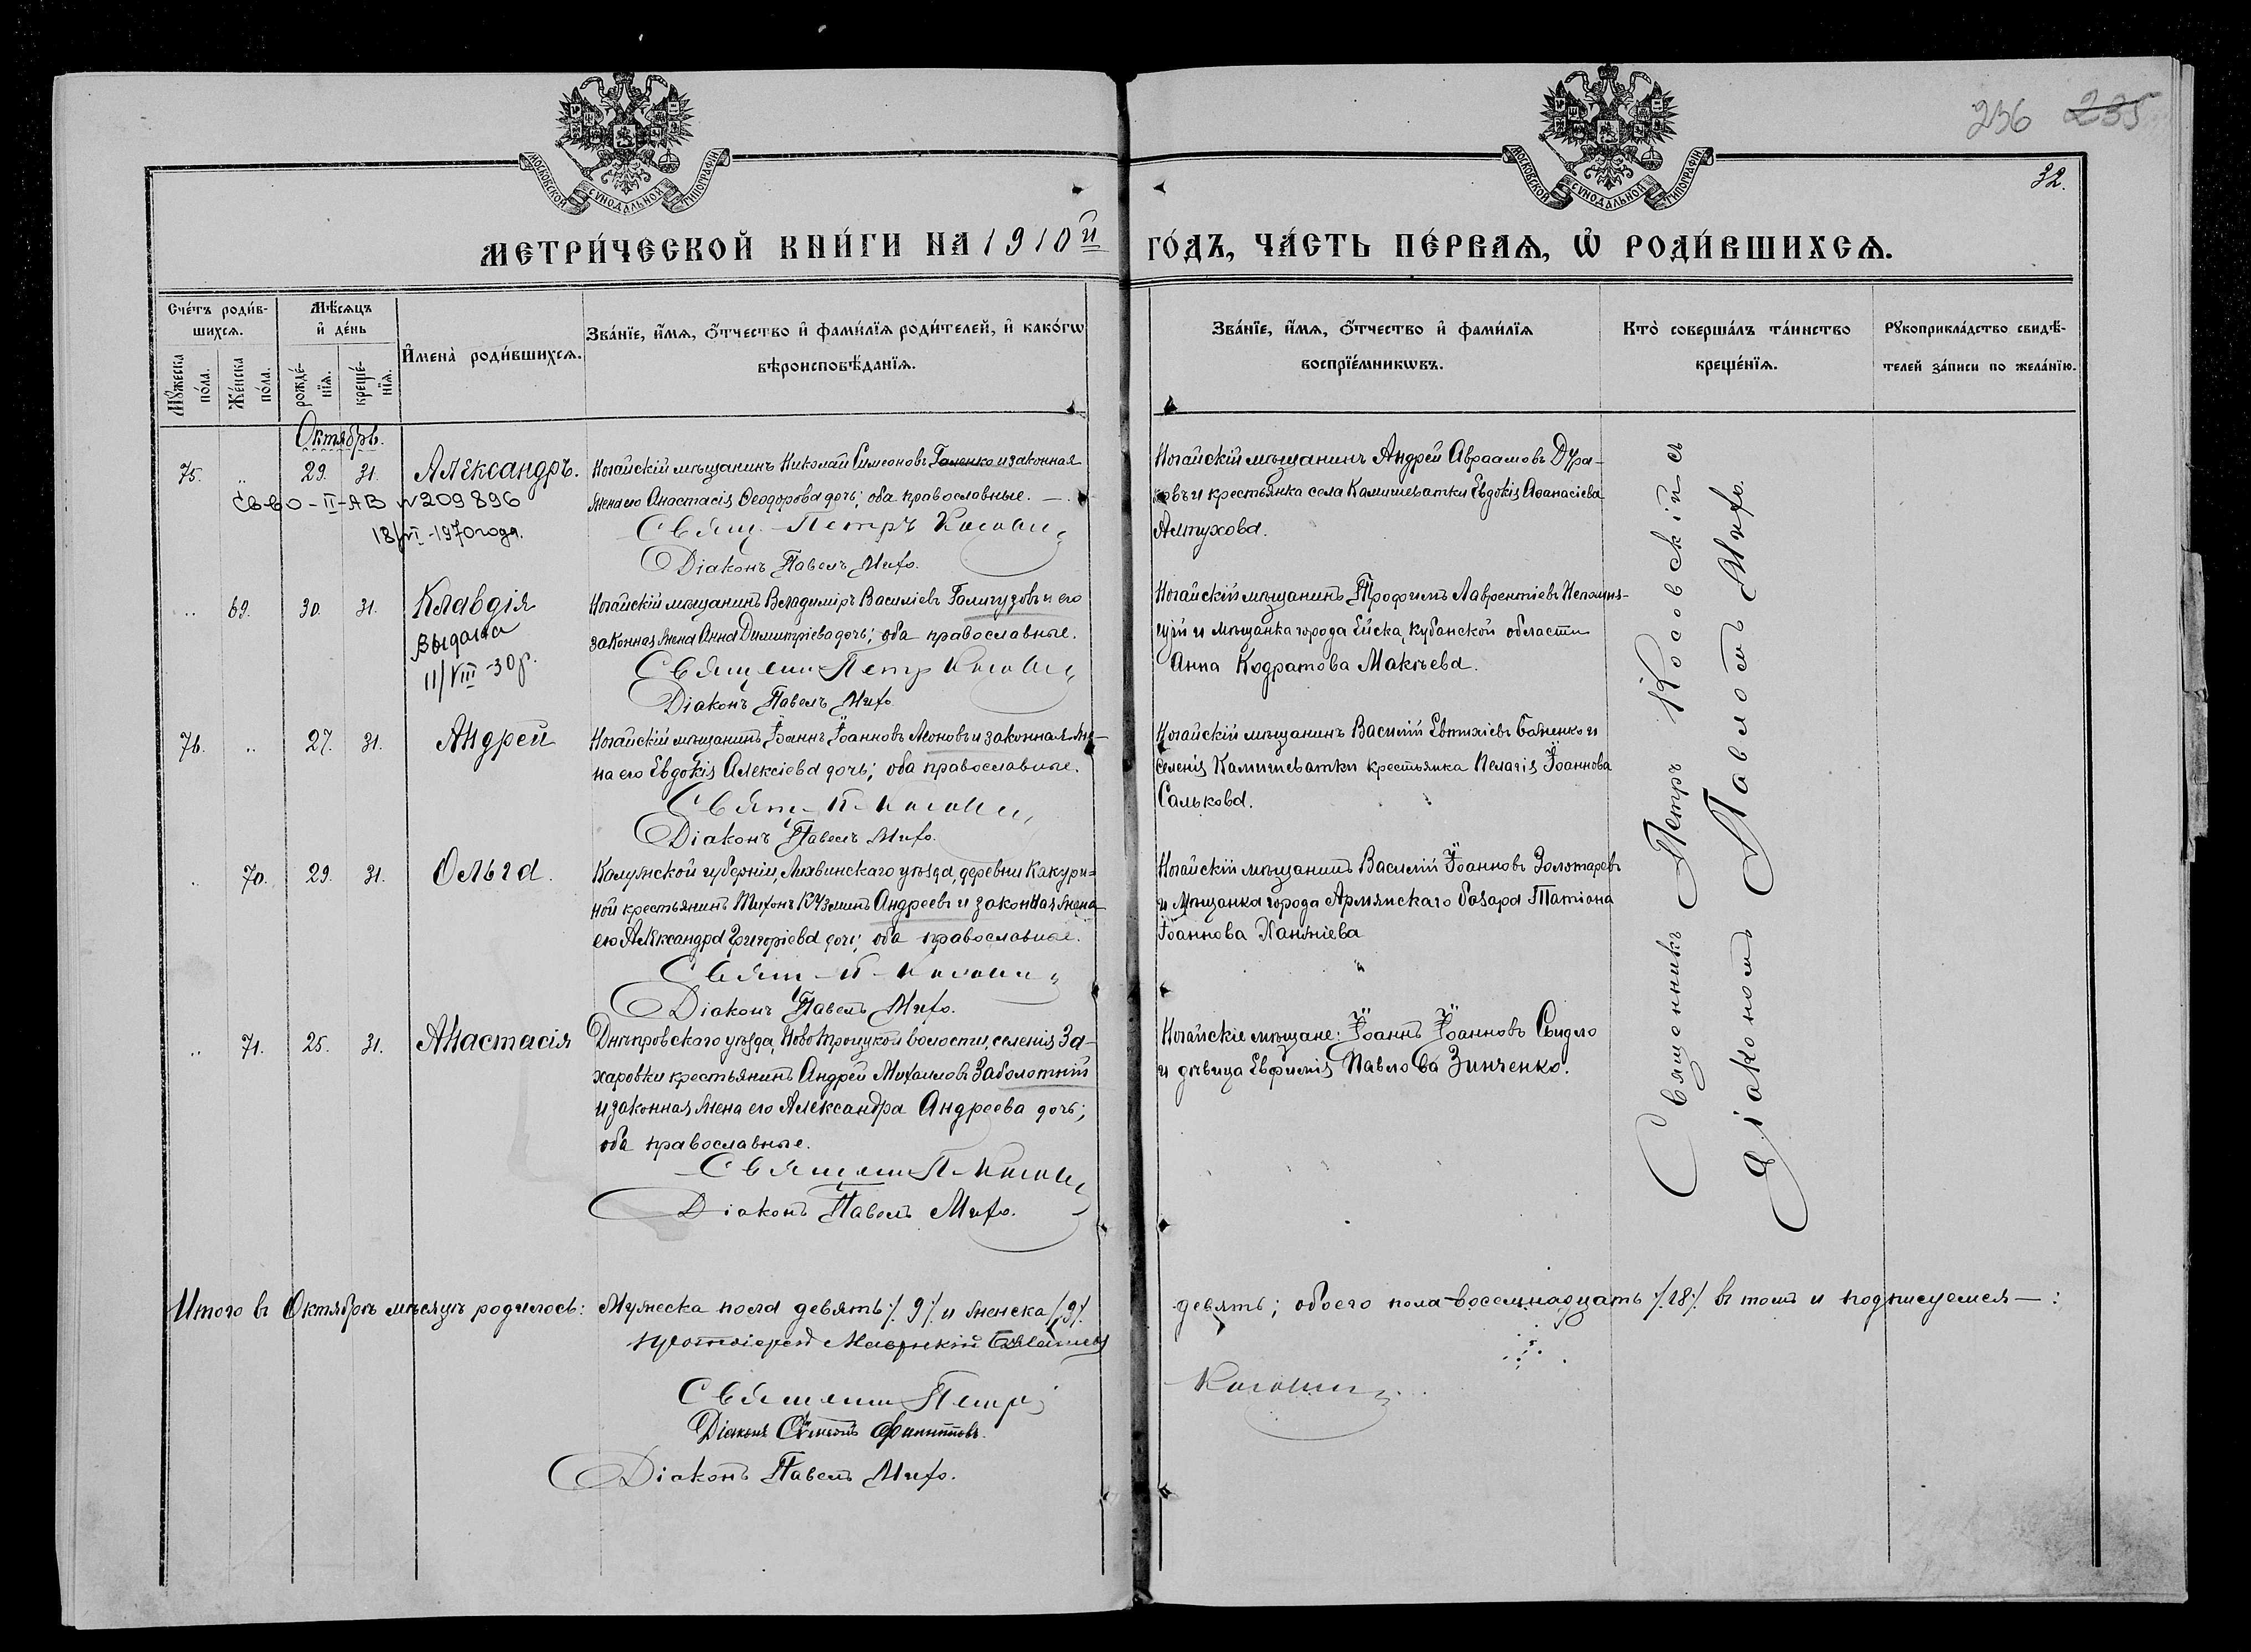 236 235
32.
МОСКОВСКОЙ СѴНОДАЛЬНОЙ ТИПОГРАФІИ.
МОСКОВСКОЙ СѴНОДАЛЬНОЙ ТИПОГРАФІИ.
МЕТРИ́ЧЕСКОЙ КНИ́ГИ НА 1910й ГО́ДЪ, ЧА́СТЬ ПЕ́РВАѦ, Ѡ҆ РОДИ́ВШИХСѦ.
Сче́тъ роди́в-
шихсѧ.
Мꙋ́жеска
по́ла.
Же́нска
по́ла.
Мѣ́сѧцъ
и҆ де́нь
рожде́-
нїѧ.
креще́-
нїѧ.
И҆мена̀ роди́вшихсѧ.
Зва́нїе, и҆́мѧ, ѻ҆́тчество и҆ фами́лїѧ роди́телей, и҆ како́гѡ
вѣроисповѣ́данїѧ.
Зва́нїе, и҆́мѧ, ѻ҆́тчество и҆ фами́лїѧ
воспрїе́мникѡвъ.
Кто̀ соверша́лъ та́инство
креще́нїѧ.
Рꙋкоприкла́дство свидѣ́-
телей за́писи по жела́нїю.
Октябрь.
75. „ 29. 31. Александръ. Ногайскій мѣщанинъ Николай Симеоновъ Галенко и законная
жена его Анастасія Ѳеодорова дочь; оба православные. —
Св-во-II-АВ N 209896
18/VI-1970 года.
Свящ. Петръ
Діаконъ Павелъ Михо.
Ногайскій мѣщанинъ Андрей Авраамовъ Дура-
ковъ и крестьянка села Камышеватки Евдокія Аѳанасіева
Алтухова.
„ 69. 30. 31. Клавдія Ногайскій мѣщанинъ Владиміръ Василіевъ Галигузовъ и его
законная жена Анна Димитріева дочь; оба православные.
Выдана
11/VIII-30р.
Священ Петръ
Діаконъ Павелъ Михо.
Ногайскій мѣщанинъ Трофимъ Лаврентіевъ
и мѣщанка города Ейска, Кубанской области
Анна Кодратова Макѣева.
76. „ 27. 31. Андрей Ногайскій мѣщанинъ Іоаннъ Іоанновъ Моновъ и законная же-
на его Евдокія Алексіева дочь; оба православные.
Свящ. П.
Діаконъ Павелъ Михо.
Ногайскій мѣщанинъ Василій Евтихіевъ Бабенко и
селенія Камышеватки крестьянка Пелагія Іоаннова
Салькова.
„ 70. 29. 31. Ольга. Калужской губерніи, Лихвинскаго уѣзда, деревни Какури-
ной крестьянинъ Тихонъ Кузминъ Андреевъ и законная жена
его Александра Григоріева дочь; оба православные.
Свящ. П.
Діаконъ Павелъ Михо.
Ногайскій мѣщанинъ Василій Іоанновъ Золотаревъ
и мѣщанка города Армянскаго базара Татіана
Іоаннова
„ 71. 25. 31. Анастасія Днѣпровскаго уѣзда, Новотроицкой волости, селенія За-
харовки крестьянинъ Андрей Михаиловъ Заболотній
и законная жена его Александра Андреева дочь;
оба православные.
Священ П.
Діаконъ Павелъ Михо.
Ногайскіе мѣщане: Іоаннъ Іоанновъ Сыдло
и дѣвица Евфимія Павлова Зинченко.
Священникъ Петръ Косовскій съ
діакономъ Павломъ Михо.
Итого въ Октябрѣ мѣсяцѣ родилось: Мужеска пола девять ⁒ 9 ⁒ и женска ⁒ 9 ⁒ девять; обоего пола восемнадцать ⁒ 18 ⁒ въ томъ и подписуемся — :
Протоіерей
Священ Петръ
Діаконъ Филипповъ.
Діаконъ Павелъ Михо.